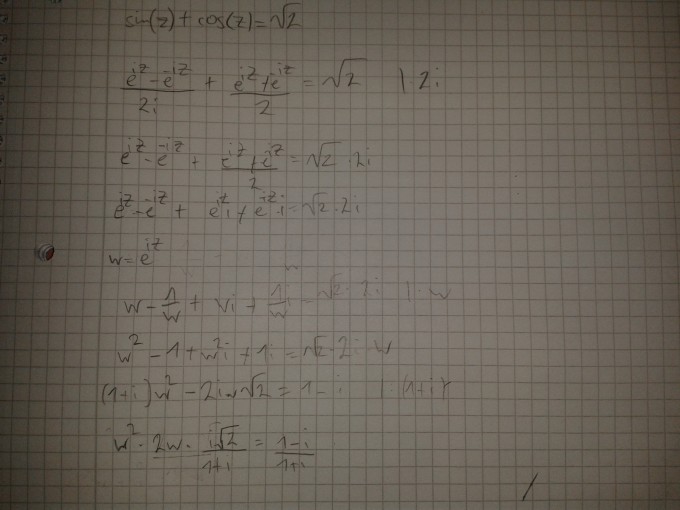 sin(z) + cos(z) = √2
(e^{iz} - e^{-iz})/2i + (e^{iz} + e^{-iz})/2 = √2 | · 2i
e^{iz} - e^{-iz} + (e^{iz} + e^{-iz})/2 = √2 · 2i
e^{iz} - e^{-iz} + e^{iz} i + e^{-iz} · i = √2 · 2i
w = e^{iz}
w - 1/w + wi + 1/w i = √2 · 2i | · w
w² - 1 + w²i + 1i = √2 · 2i · w
(1+i)w² - 2iw√2 = 1 - i | : (1+i)
w² - 2w · i√2/(1+i) = (1-i)/(1+i)